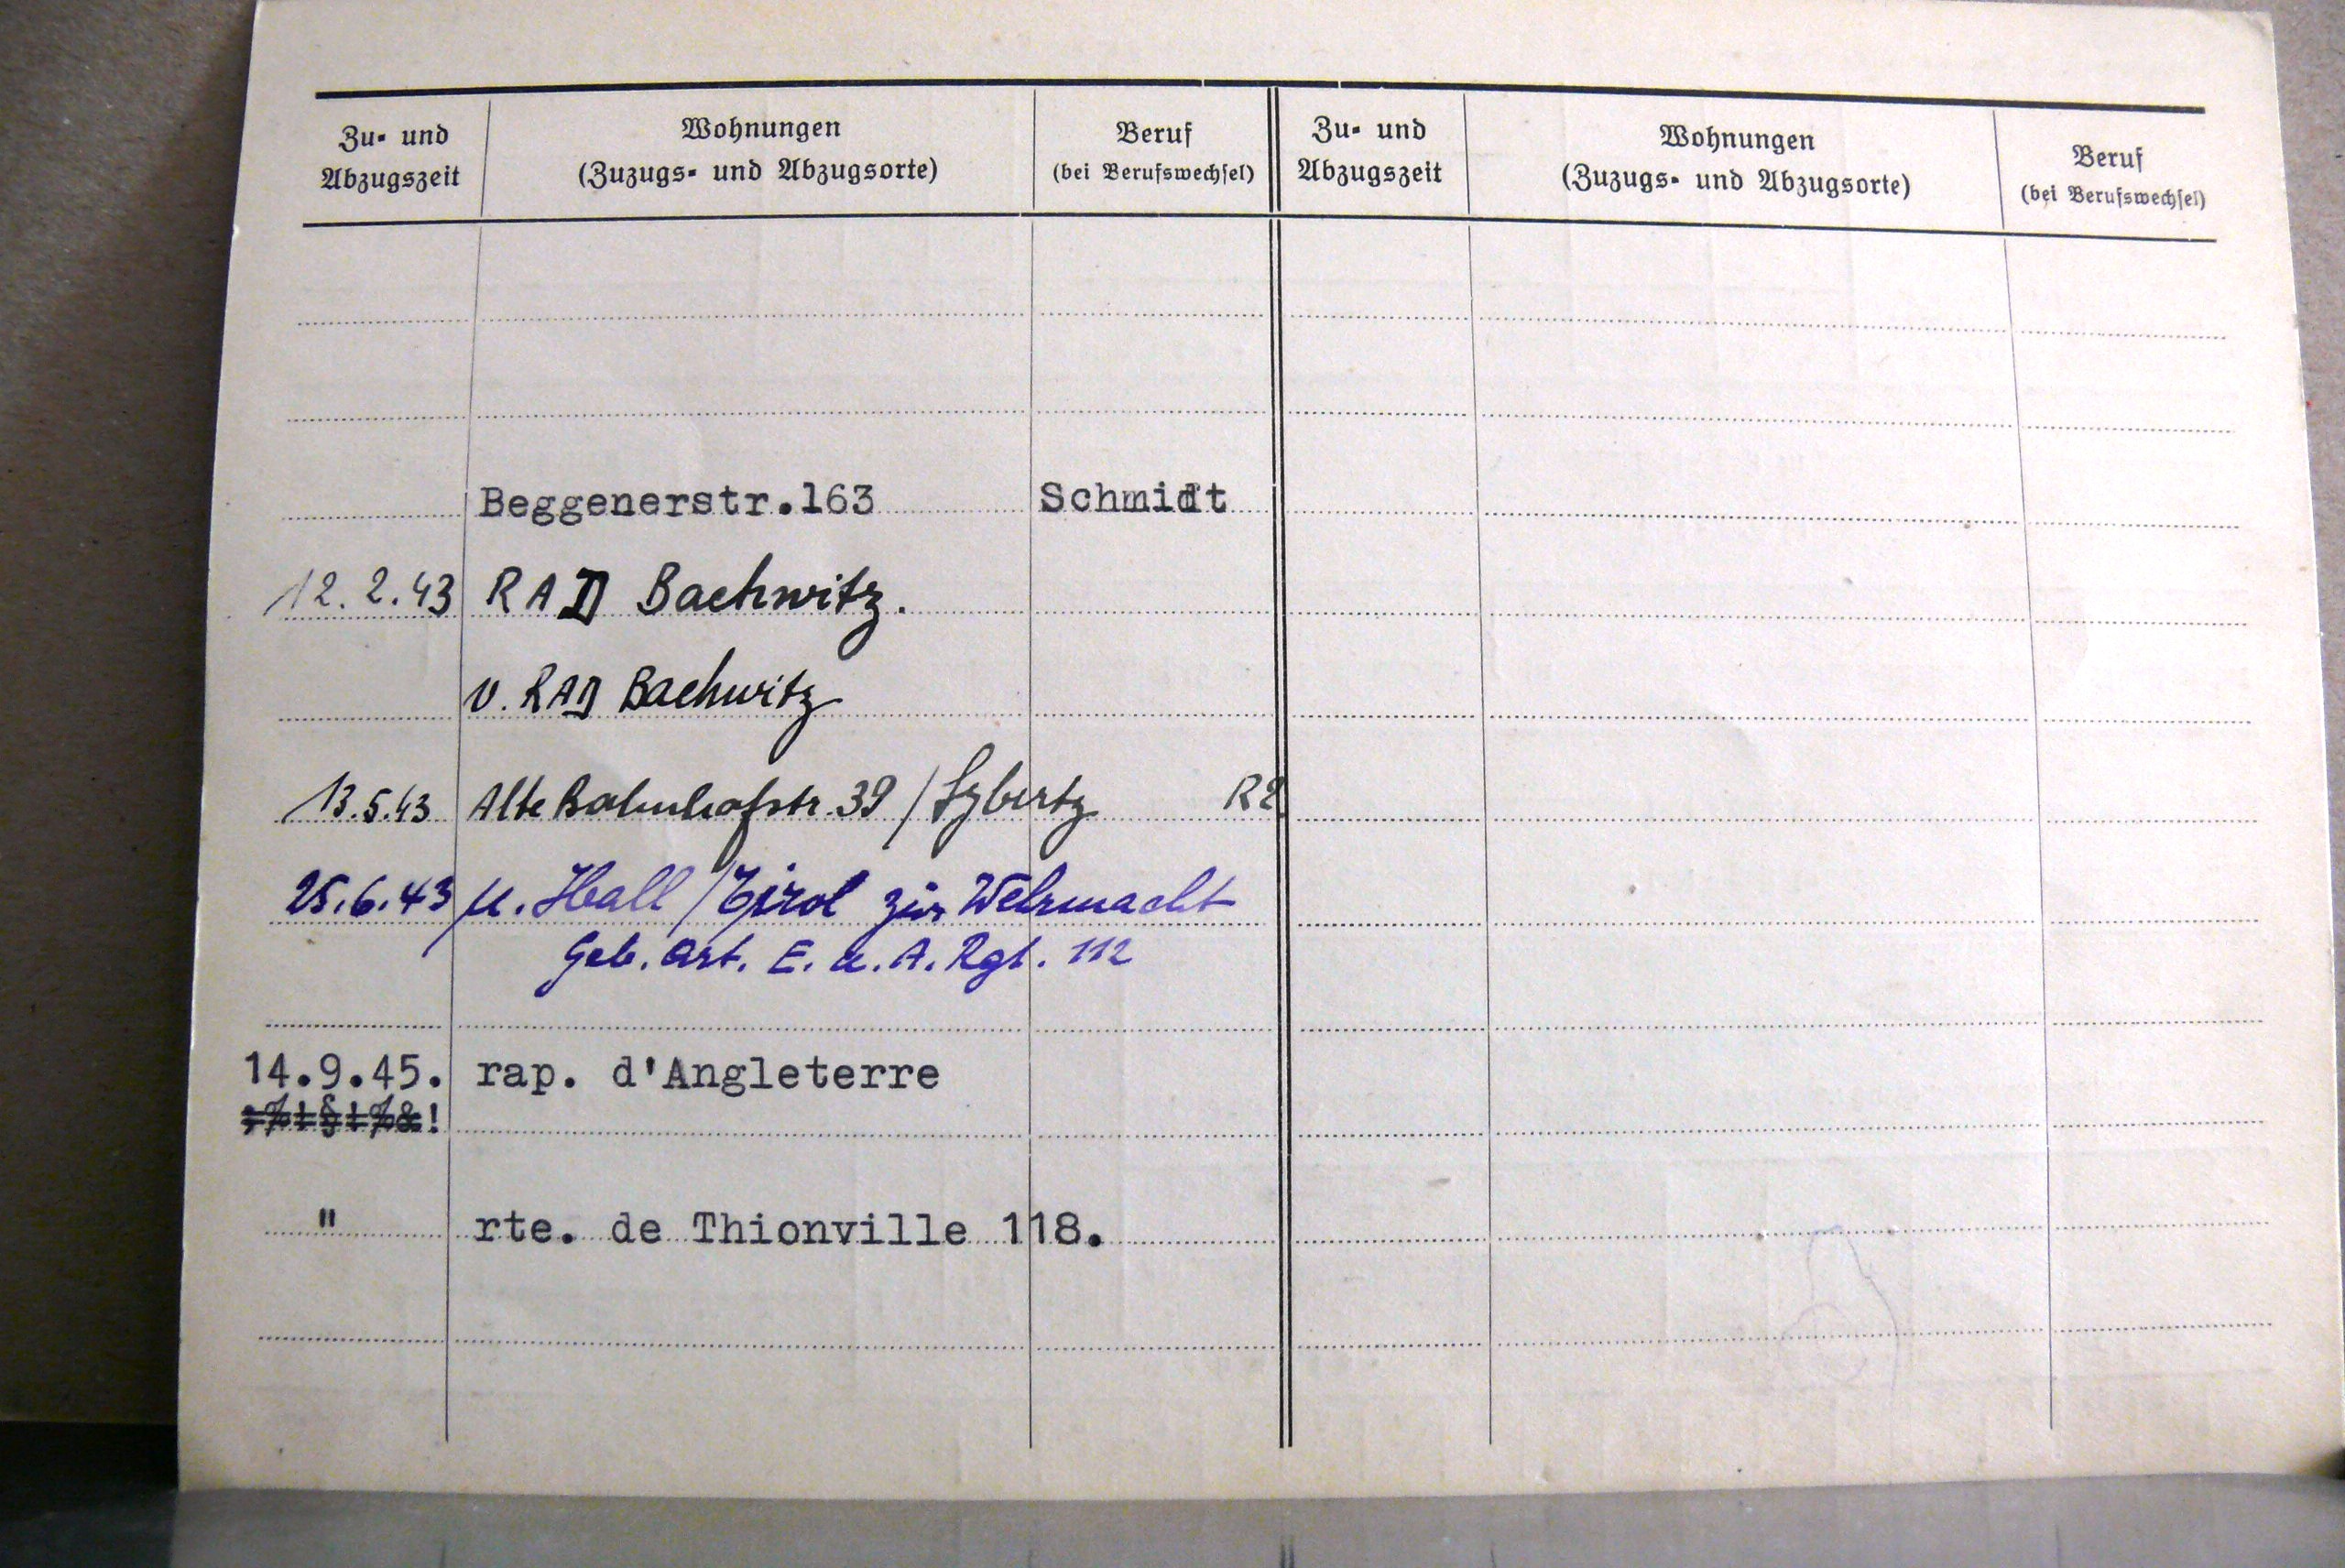 Zu- und Abzugszeit
Wohnungen
(Zuzugs- und Abzugsorte)
Beruf
(bei Berufswechsel)
Zu- und Abzugszeit
Wohnungen
(Zuzugs- und Abzugsorte)
Beruf
(bei Berufswechsel)
Beggenerstr.163 Schmidt
12.2.43 RAD Bachwitz.
v. RAD Bachwitz
13.5.43 Alte Bahnhofstr. 39 / Sybertz R2
25.6.43 n. Hall / Tirol zur Wehrmacht
Geb. Art. E. u. A. Rgt. 112
14.9.45. rap. d'Angleterre
" rte. de Thionville 118.